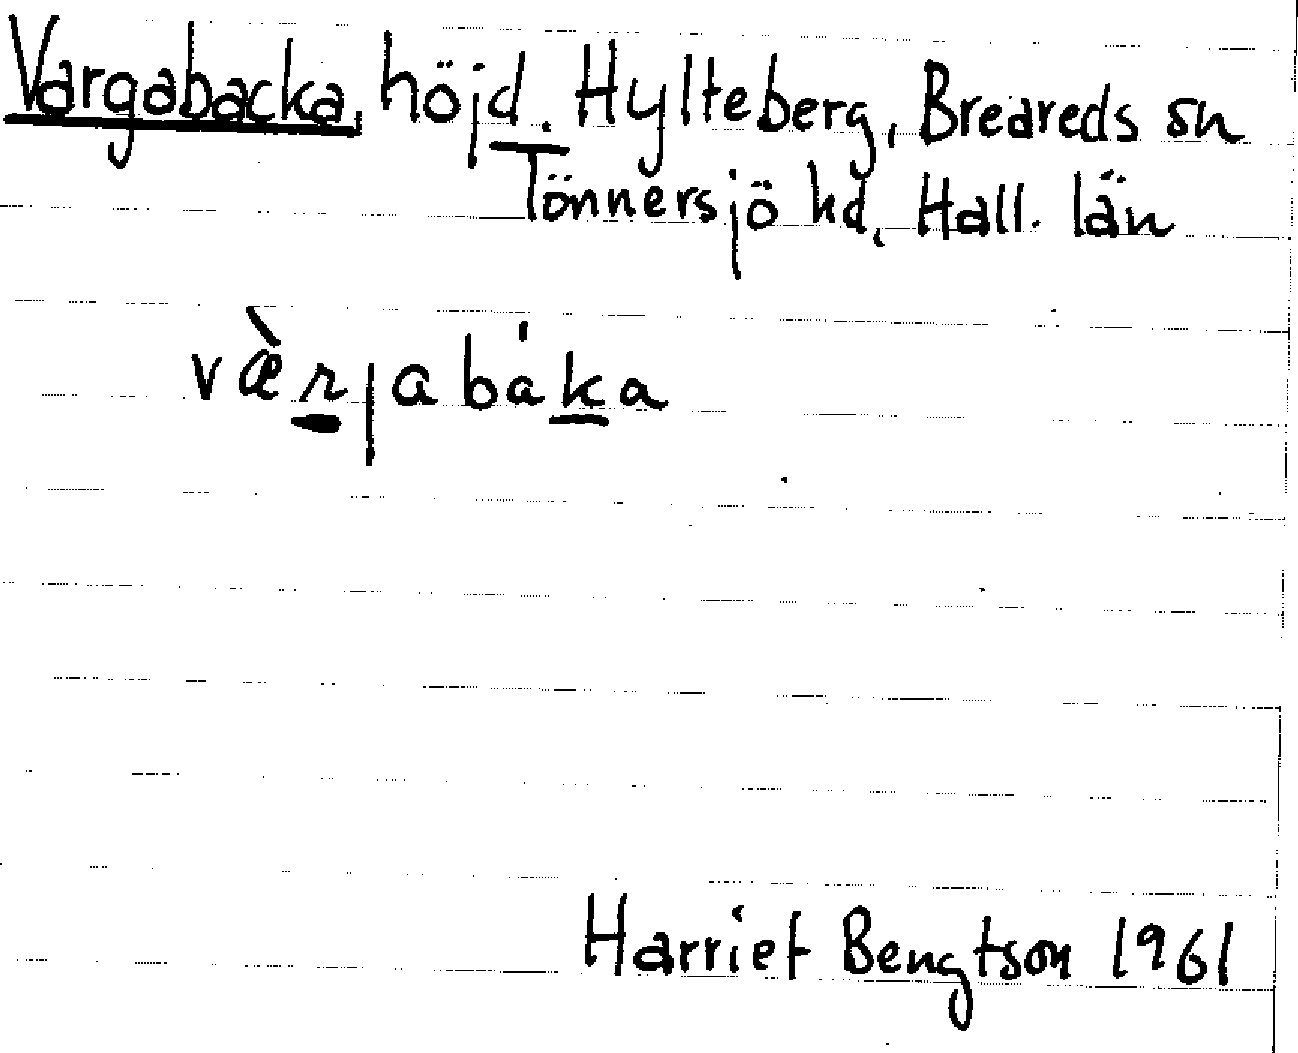 Vargabacka, höjd. Hylteberg, Breareds sn
Tönnersjö hd, Hall. län
væ̀rjabáka
Harriet Bengtson 1961